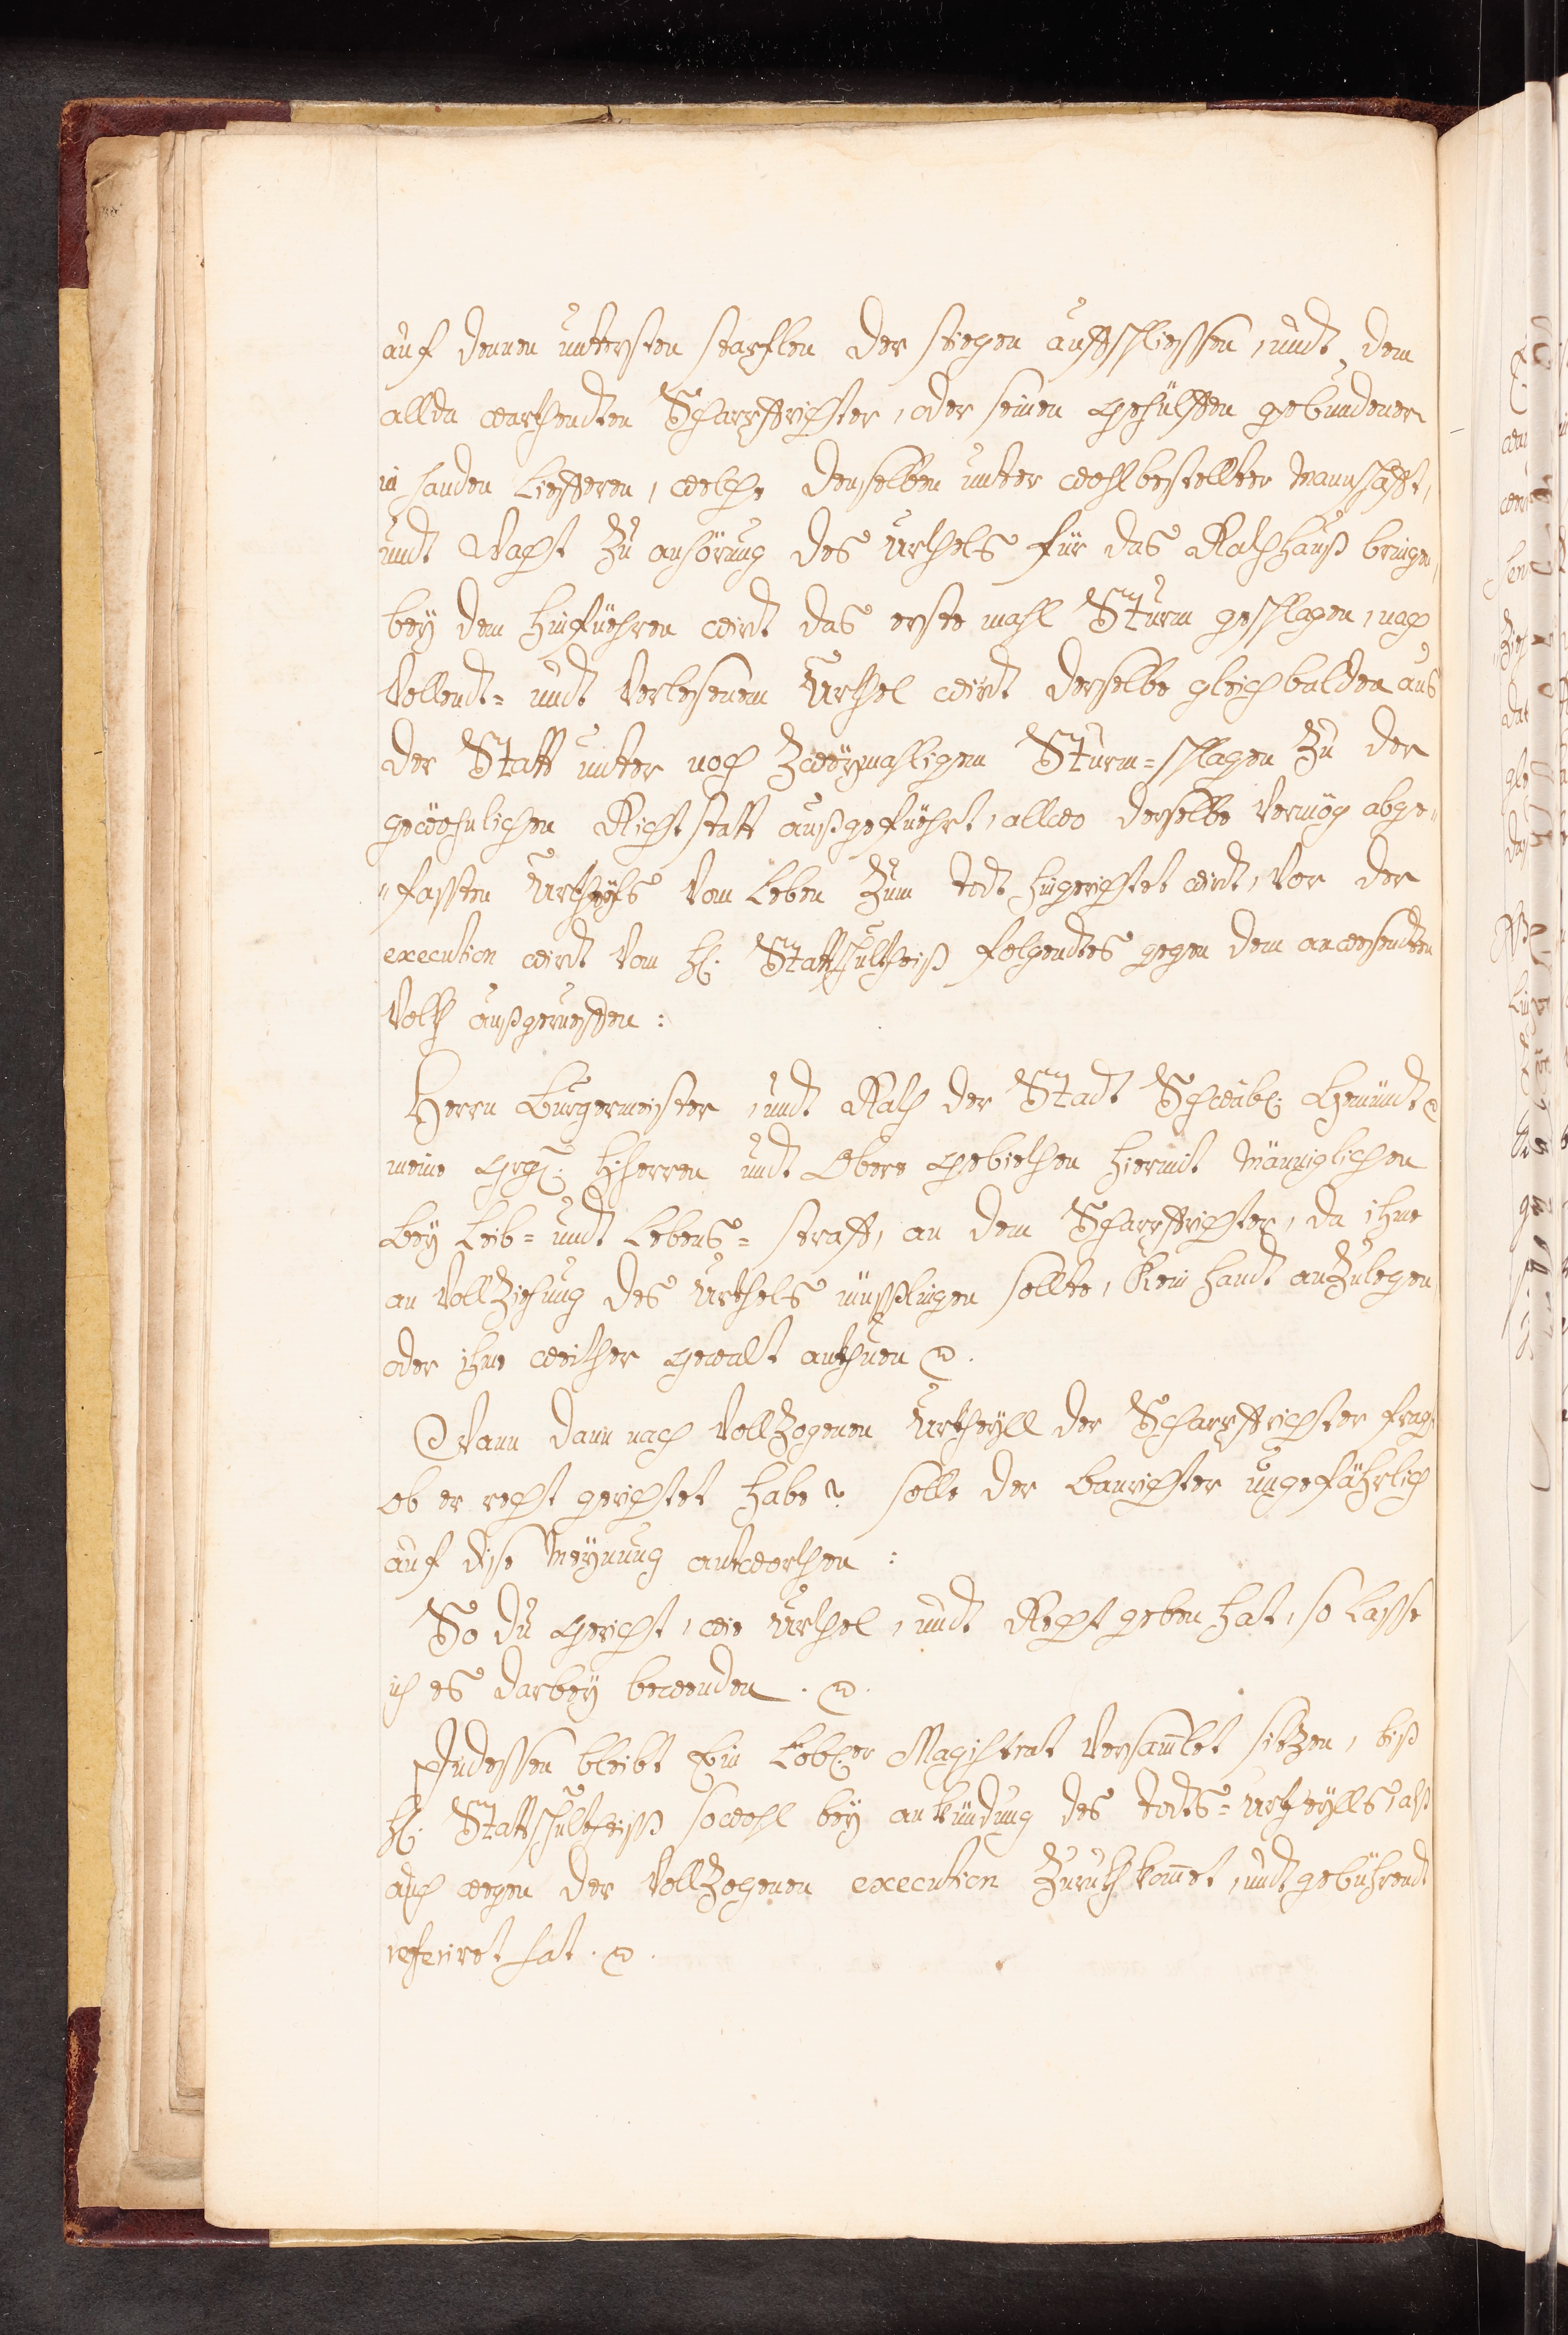 auf denen untersten starflen der stiegen auffschliessen, undt dem
allda warthendten Scharpffrichter, oder seinen gehülffen gebundener
in handen Liefferen, welche denselben unter wohlbestellter Mannschafft,
undt Wacht zu anhörung des Urthels für das Rathhauß bringen,
bey dem hinführen wirdt das erste mahl Sturm geschlagen, nach
Vollendt- undt Verlesenem Urthel wirdt derselbe gleichbalden aus
der Statt unter noch zweymahligem Sturm-schlagen zu der
gewöhnlichen Richtstatt außgeführt, allwo derselbe Vermög abge„
„fassten Urtheyls Vom Leben zum todt hingerichtet wirdt, Vor der
execution wirdt Vom H: Stattschultheiß folgendtes gegen dem anwesendten
Volk außgerueffen:
Herrn Burgermeister, undt Rath der Stadt Schwäb: Gemündt
meine Grg: Hherren undt Obere gebiethen hiermit Männiglichen
bey Leib- undt Lebens-straff, an dem Scharpffrichter, da ihme
an Vollziehung des Urthels müsslingen sollte, Kein handt anzulegen
oder ihme weither gewalt anthuen.
Wann dann nach Vollzogenen Urtheyll der Scharpffrichter fragt
ob er recht gerichtet habe? solle der Banrichter ungefährlich
auf dise Meynung antworthen:
So du gericht, wie Urthel, undt Recht geben hat, so Lasse
ich es darbey bewenden.
Indessen bleibt Ein Löbl:er Magistrat Versam̄let sitzen, biß
H: Stattschultheiss sowohl bey ankündung des todts-urtheylls, alß
auch wegen der Vollzogenen execution zuruckh kom̄et, undt gebührendt
referiret hat.